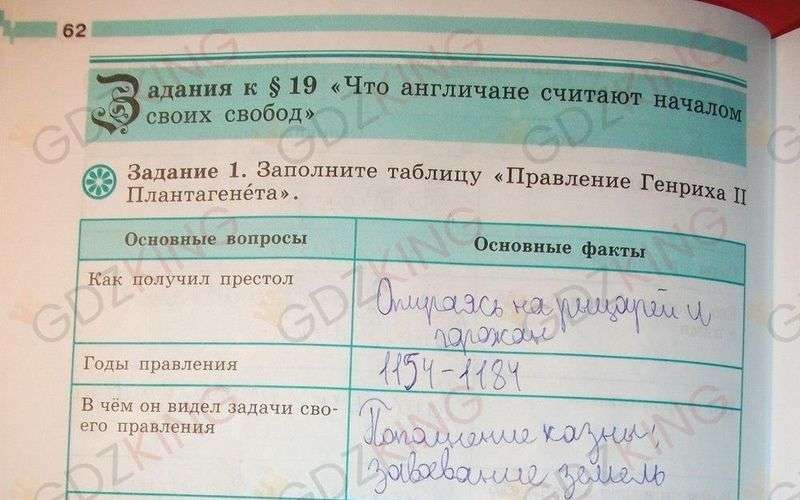 62
Задания к § 19 «Что англичане считают началом
своих свобод»
Задание 1. Заполните таблицу «Правление Генриха II
Плантагене́та».
Основные вопросы
Основные факты
Как получил престол
Опираясь на рыцарей и
горожан
Годы правления
1154-1184
В чём он видел задачи сво-
его правления
завоевание земель
GDZKING